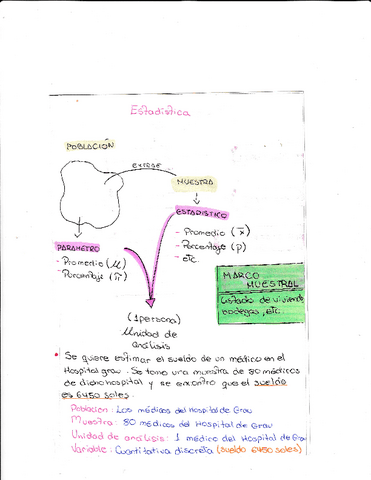 Estadística
POBLACIÓN
extrae
MUESTRA
ESTADISTICO
- Promedio (x̄)
- Porcentaje (p)
- etc.
PARAMETRO
- Promedio (μ)
- Porcentaje (π)
MARCO
MUESTRAL
Listado de vivienda
bodegas, etc.
(1 persona)
Unidad de
análisis
• Se quiere estimar el sueldo de un médico en el
Hospital grau. Se toma una muestra de 80 médicos
de dicho hospital y se encontro que el sueldo
es 6450 soles.
Población: Los médicos del hospital de Grau
Muestra: 80 médicos del Hospital de Grau
Unidad de análisis: 1 médico del Hospital de Grau
Variable: Cuantitativa discreta (sueldo 6450 soles)